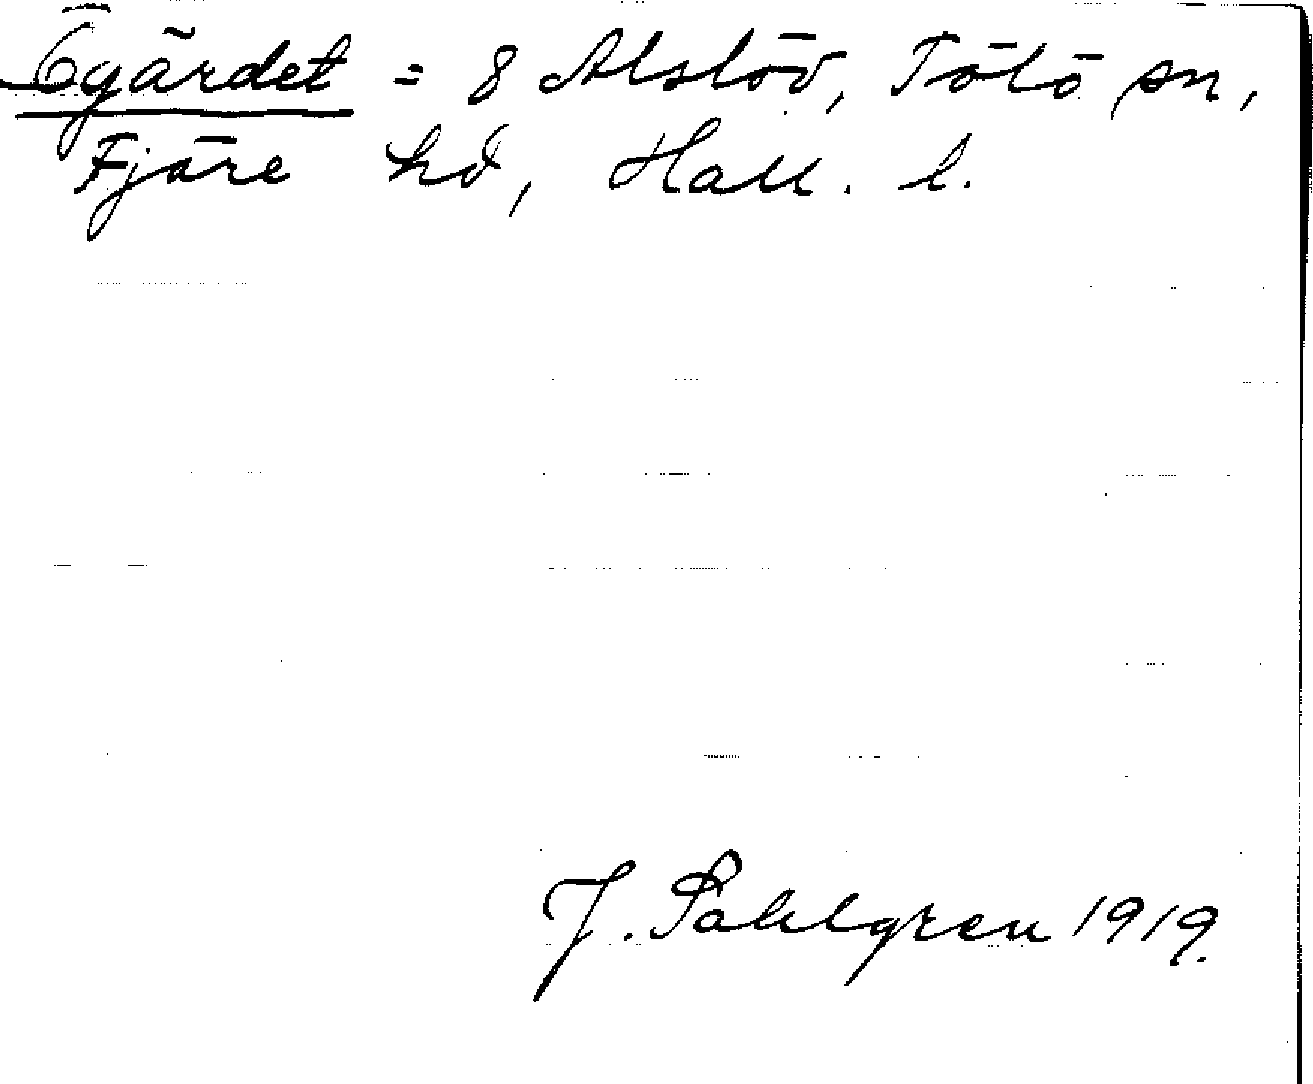 Ögärdet = 8 Alslöv, Tölö sn,
Fjäre hd, Hall. l.
J. Sahlgren 1919.